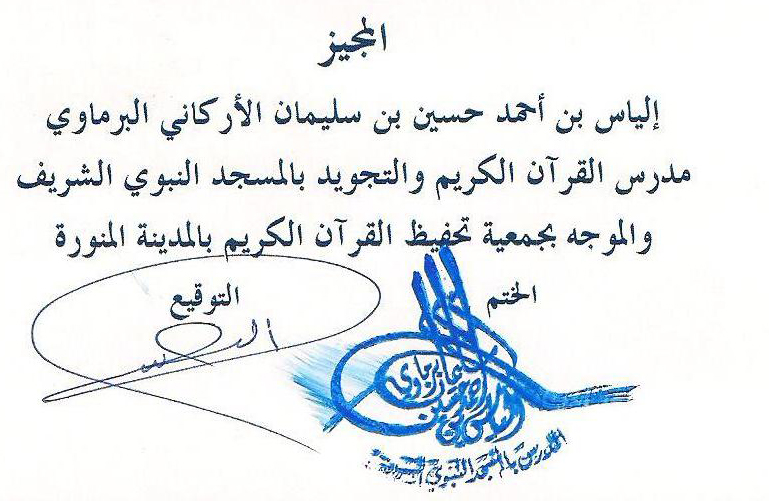 المجيز
إلياس بن أحمد حسين بن سليمان الأركاني البرماوي
مدرس القرآن الكريم والتجويد بالمسجد النبوي الشريف
والموجه بجمعية تحفيظ القرآن الكريم بالمدينة المنورة
الختم
التوقيع
المدرس بالمسجد النبوي الشريف